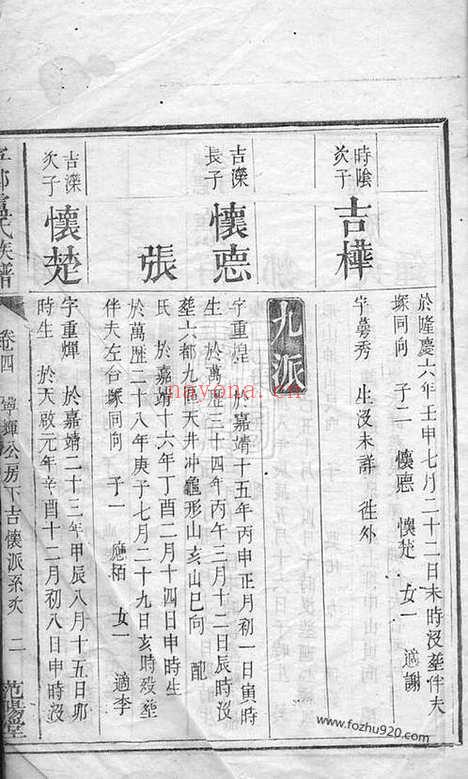 於隆慶六年壬申七月二十二日未時沒塟伴夫
塚同向 子二 懷悳 懷楚 女一 適謝
時陰
次子
吉樺
字蕚秀 生沒未詳 徃外
九派
吉濚
長子
懷悳
字重煌 於嘉靖十五年丙申正月初一日寅時
生 於萬歷三十四年丙午三月十二日辰時沒
塟六都九天井冲龜形山亥山巳向 配
張
氏 於嘉靖十六年丁酉二月十四日申時生
於萬歷二十八年庚子七月二十九日亥時歿塟
伴夫左台塚同向 子一 應栢 女一 適李
吉濚
次子
懷楚
字重燀 於嘉靖二十三年甲辰八月十五日卯
時生 於天啟元年辛酉十二月初八日申時沒
氏族譜
卷四
公房下吉懷派系次
二
范陽堂
nayona.cn
www.fozhu920.com